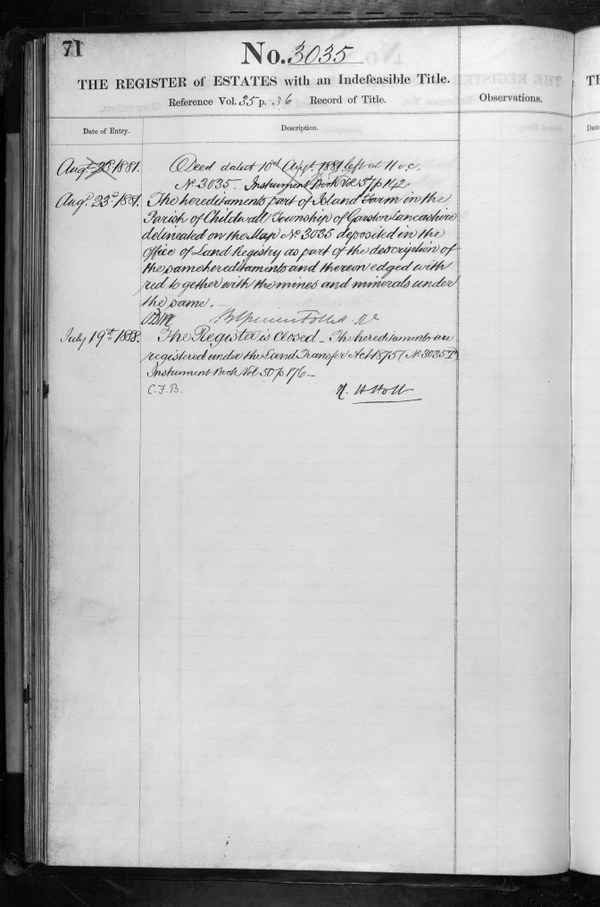 71
No. 3035
THE REGISTER of ESTATES with an Indefeasible Title.
Reference Vol. 35 p. 36 Record of Title.
Observations.
Date of Entry.
Description.
Augt 23 1881. Deed dated 10th Augt 1881 left at 11 o.c.
No 3035. Instrument Book Vol 37 p 142
Augt 23d 1881. The hereditaments part of Island Farm in the
Parish of Childwall Township of Garston Lancashire
delineated on the Map No 3035 deposited in the
Office of Land Registry as part of the description of
the same hereditaments and thereon edged with
red together with the mines and minerals under
the same.
Follett
July 19th 1888. The Register is closed - The hereditaments are
registered under the Land Transfer Act 1875 / No 3035
Instrument Book Vol 50 p 176 -
C.F.B. Holt